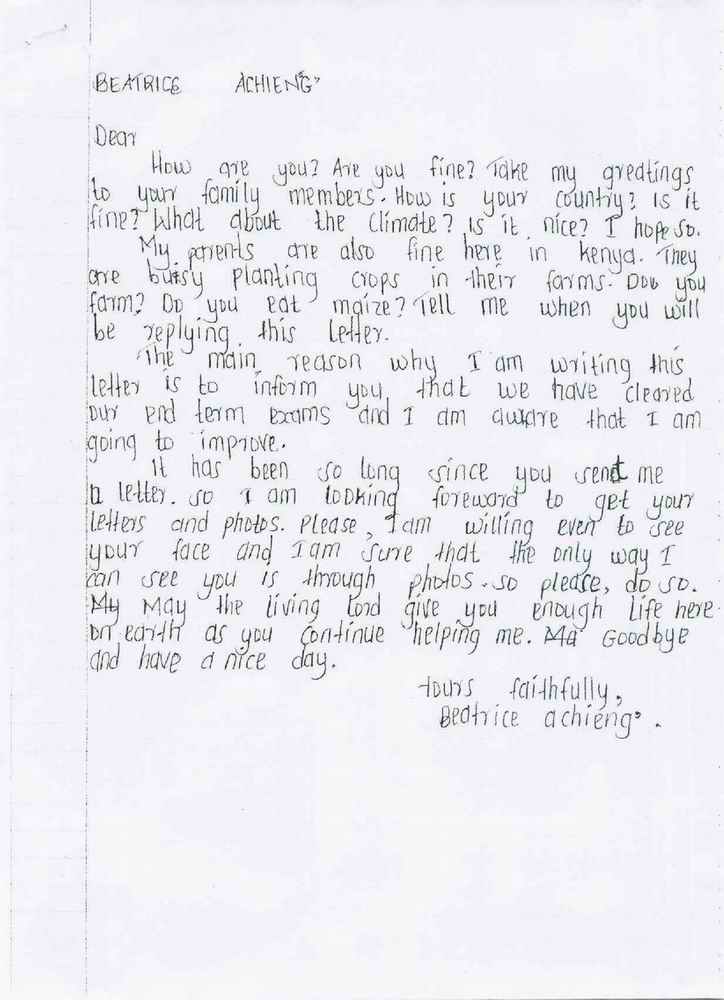 BEATRICE ACHIENG'
Dear
How are you? Are you fine? Take my greetings
to your family members. How is your country? Is it
fine? What about the climate? Is it nice? I hope so.
My parents are also fine here in kenya. They
are butsy planting crops in their farms. Doo you
farm? Do you eat maize? Tell me when you will
be replying this letter.
The main reason why I am writing this
letter is to inform you that we have cleared
our end term exams and I am aware that I am
going to improve.
It has been so long since you sent me
a letter. so I am looking foreword to get your
letters and photos. Please, I am willing even to see
your face and I am sure that the only way I
can see you is through photos. so please, do so.
My May the living Lord give you enough life here
on earth as you continue helping me. Ma Goodbye
and have a nice day.
Yours faithfully,
Beatrice achieng'.